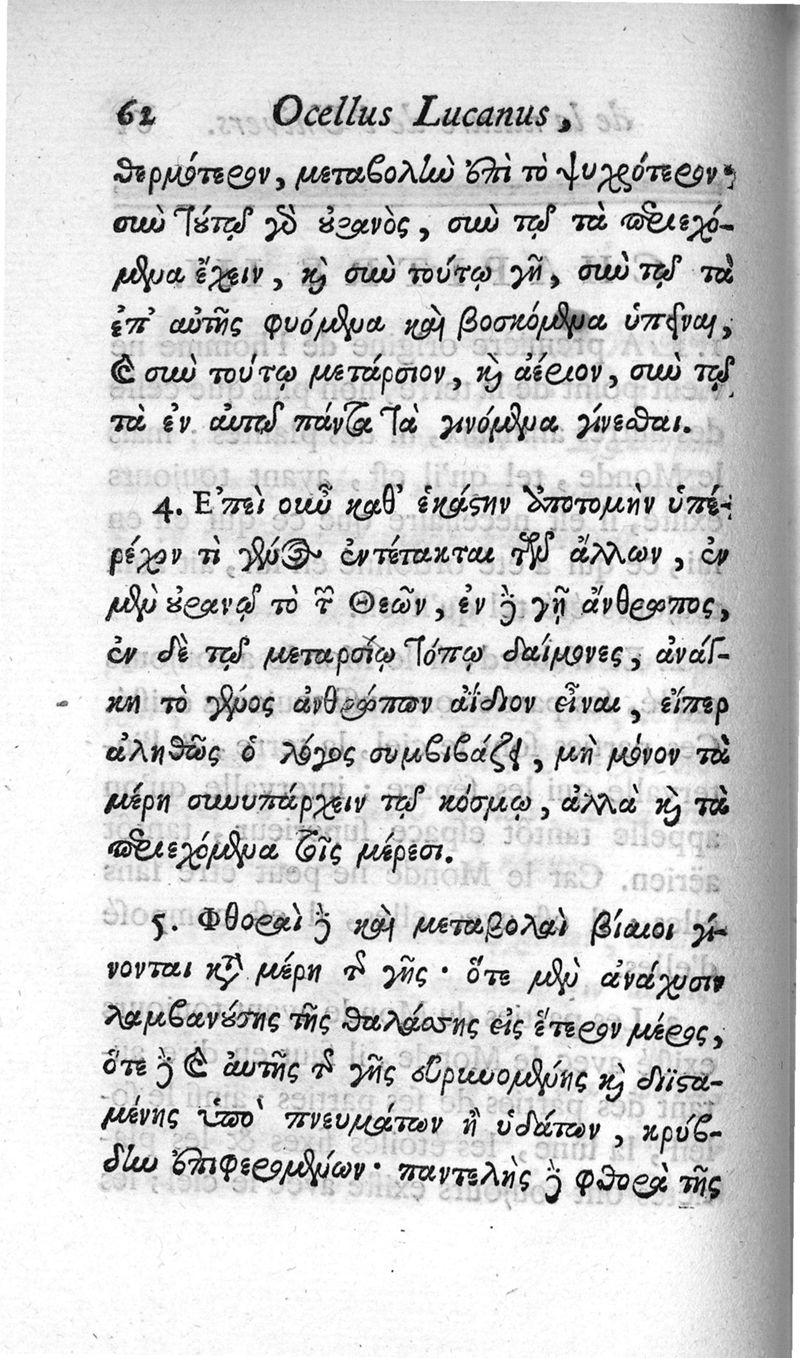 62 Ocellus Lucanus,
θερμότερον, μεταβολὴν ἐπὶ τὸ ψυχρότερον·
σὺν τούτῳ γὸ οὐρανὸς, σὺν τῷ τὰ περιεχό-
μενα ἔχειν, καὶ σὺν τούτῳ γῆ, σὺν τῷ τὰ
ἐπ' αὐτῆς φυόμενα καὶ βοσκόμενα ὑπεῖναι,
καὶ σὺν τούτῳ μετάρσιον, καὶ ἀέριον, σὺν τῷ
τὰ ἐν αὐτῷ πάντα τὰ γινόμενα γίνεσθαι.
4. Ἐπεὶ οὖν καθ' ἑκάστην ἀποτομὴν ὑπέ-
ρέχον τὶ γένος ἐντέτακται τῶν ἄλλων, ἐν
μὲν οὐρανῷ τὸ τῶν Θεῶν, ἐν δὲ γῇ ἄνθρωπος,
ἐν δὲ τῷ μεταρσίῳ τόπῳ δαίμονες, ἀνάγ-
κη τὸ γένος ἀνθρώπων ἀΐδιον εἶναι, εἴπερ
ἀληθῶς ὁ λόγος συμβιβάζει, μὴ μόνον τὰ
μέρη συνυπάρχειν τῷ κόσμῳ, ἀλλὰ καὶ τὰ
περιεχόμενα τοῖς μέρεσι.
5. Φθοραὶ δὲ καὶ μεταβολαὶ βίαιοι γί-
νονται κατὰ μέρη τῆς γῆς· ὅτε μὲν ἀνάχυσιν
λαμβανούσης τῆς θαλάσσης εἰς ἕτερον μέρος,
ὅτε δὲ καὶ αὐτῆς τῆς γῆς εὐρυνομένης καὶ διϊστα-
μένης ὑπὸ πνευμάτων ἢ ὑδάτων, κρύβ-
δην ἐπιφερομένων· παντελὴς δὲ φθορὰ τῆς